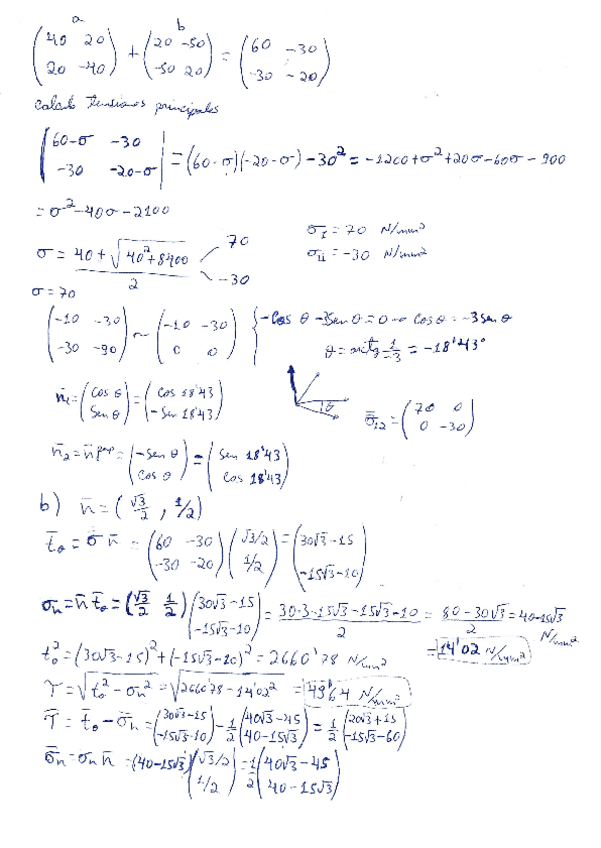 a b
(40 20; 20 -40) + (20 -50; -50 20) = (60 -30; -30 -20)
calculo tensiones principales
|60-σ -30; -30 -20-σ| = (60-σ)(-20-σ) - 30² = -1200 + σ² + 20σ - 60σ - 900
= σ² - 40σ - 2100
σ = (40 + √(40² + 8400))/2 70 -30
σI = 70 N/mm²
σII = -30 N/mm²
σ = 70
(-10 -30; -30 -90) ~ (-10 -30; 0 0) { -cos θ - 3sen θ = 0 → cos θ = -3 sen θ
θ = arctg 1/-3 = -18'43°
n̄₁ = (cos θ; sen θ) = (cos 18'43; -sen 18'43)
θ
σ̿₁₂ = (70 0; 0 -30)
n̄₂ = n̄ perp = (-sen θ; cos θ) = (sen 18'43; cos 18'43)
b) n̄ = (√3/2, 1/2)
t̄₀ = σ̿ n̄ = (60 -30; -30 -20)(√3/2; 1/2) = (30√3-15; -15√3-10)
σn = n̄ t̄₀ = (√3/2 1/2)(30√3-15; -15√3-10) = (30·3-15√3-15√3-10)/2 = (80-30√3)/2 = 40-15√3 N/mm²
= 14'02 N/mm²
t₀² = (30√3-15)² + (-15√3-10)² = 2660'78 N/mm²
τ = √(t₀² - σn²) = √(2660'78 - 14'02²) = 49'64 N/mm²
τ̄ = t̄₀ - σ̄n = (30√3-15; -15√3-10) - 1/2 (40√3-45; 40-15√3) = 1/2 (20√3+15; -15√3-60)
σ̄n = σn n̄ = (40-15√3)(√3/2; 1/2) = 1/2 (40√3-45; 40-15√3)